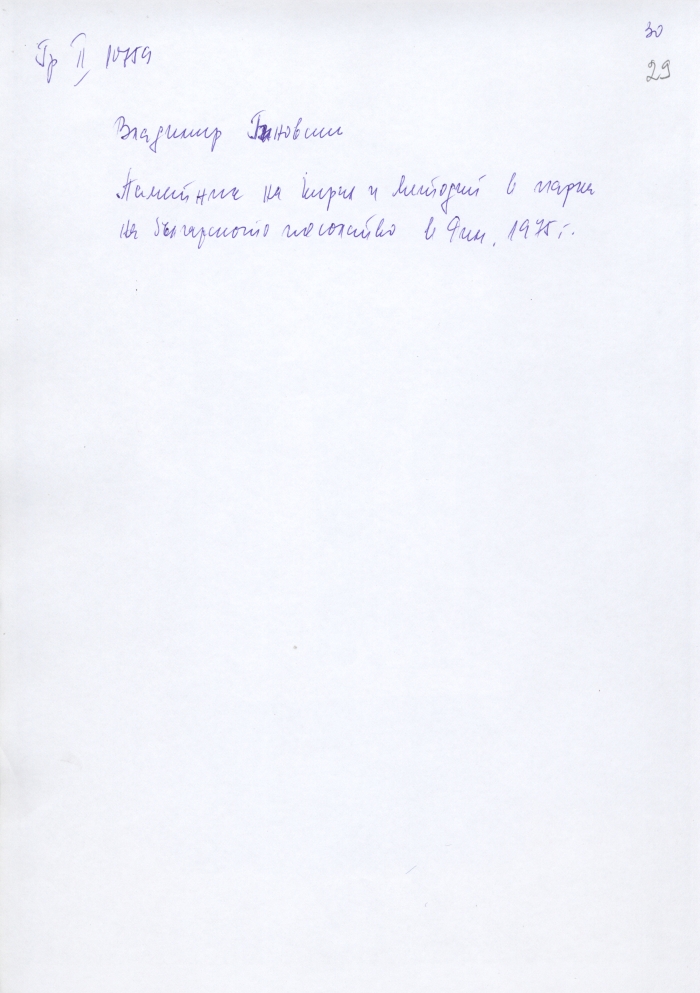 30
Гр II 10759
29
Владимир Гиновски
Паметник на Кирил и Методий в парка
на българското посолство в Рим, 1975 г.